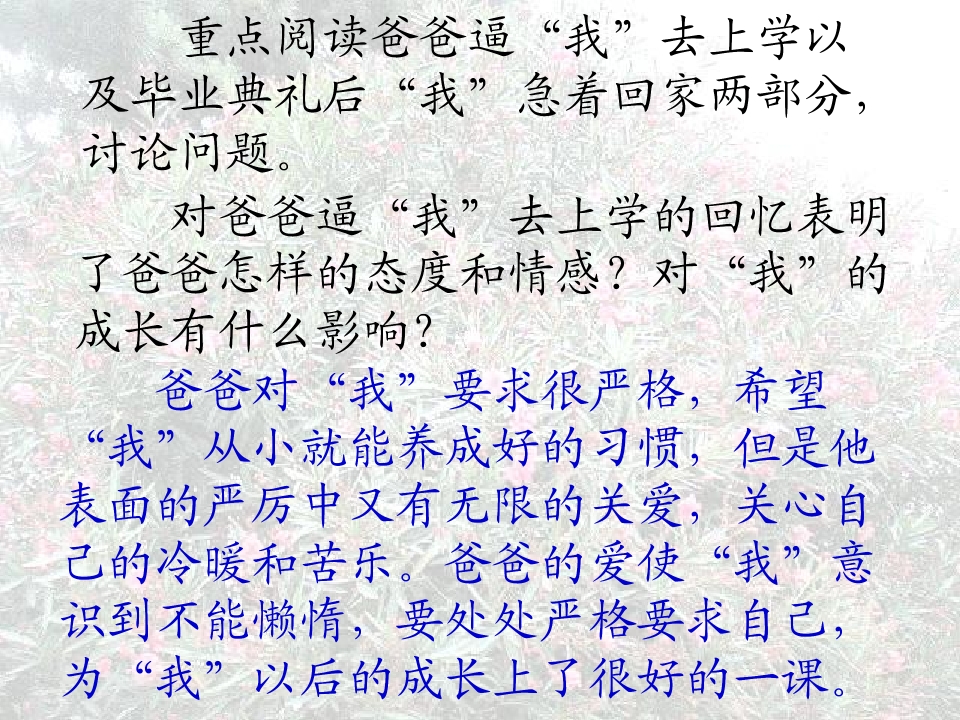 重点阅读爸爸逼“我”去上学以
及毕业典礼后“我”急着回家两部分，
讨论问题。
对爸爸逼“我”去上学的回忆表明
了爸爸怎样的态度和情感？对“我”的
成长有什么影响？
爸爸对“我”要求很严格，希望
“我”从小就能养成好的习惯，但是他
表面的严厉中又有无限的关爱，关心自
己的冷暖和苦乐。爸爸的爱使“我”意
识到不能懒惰，要处处严格要求自己，
为“我”以后的成长上了很好的一课。